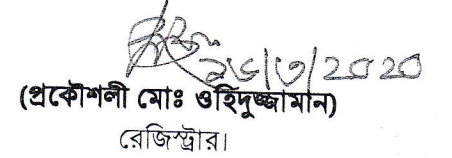 ২৬/৩/2020
(প্রকৌশলী মোঃ ওহিদুজ্জামান)
রেজিস্ট্রার।